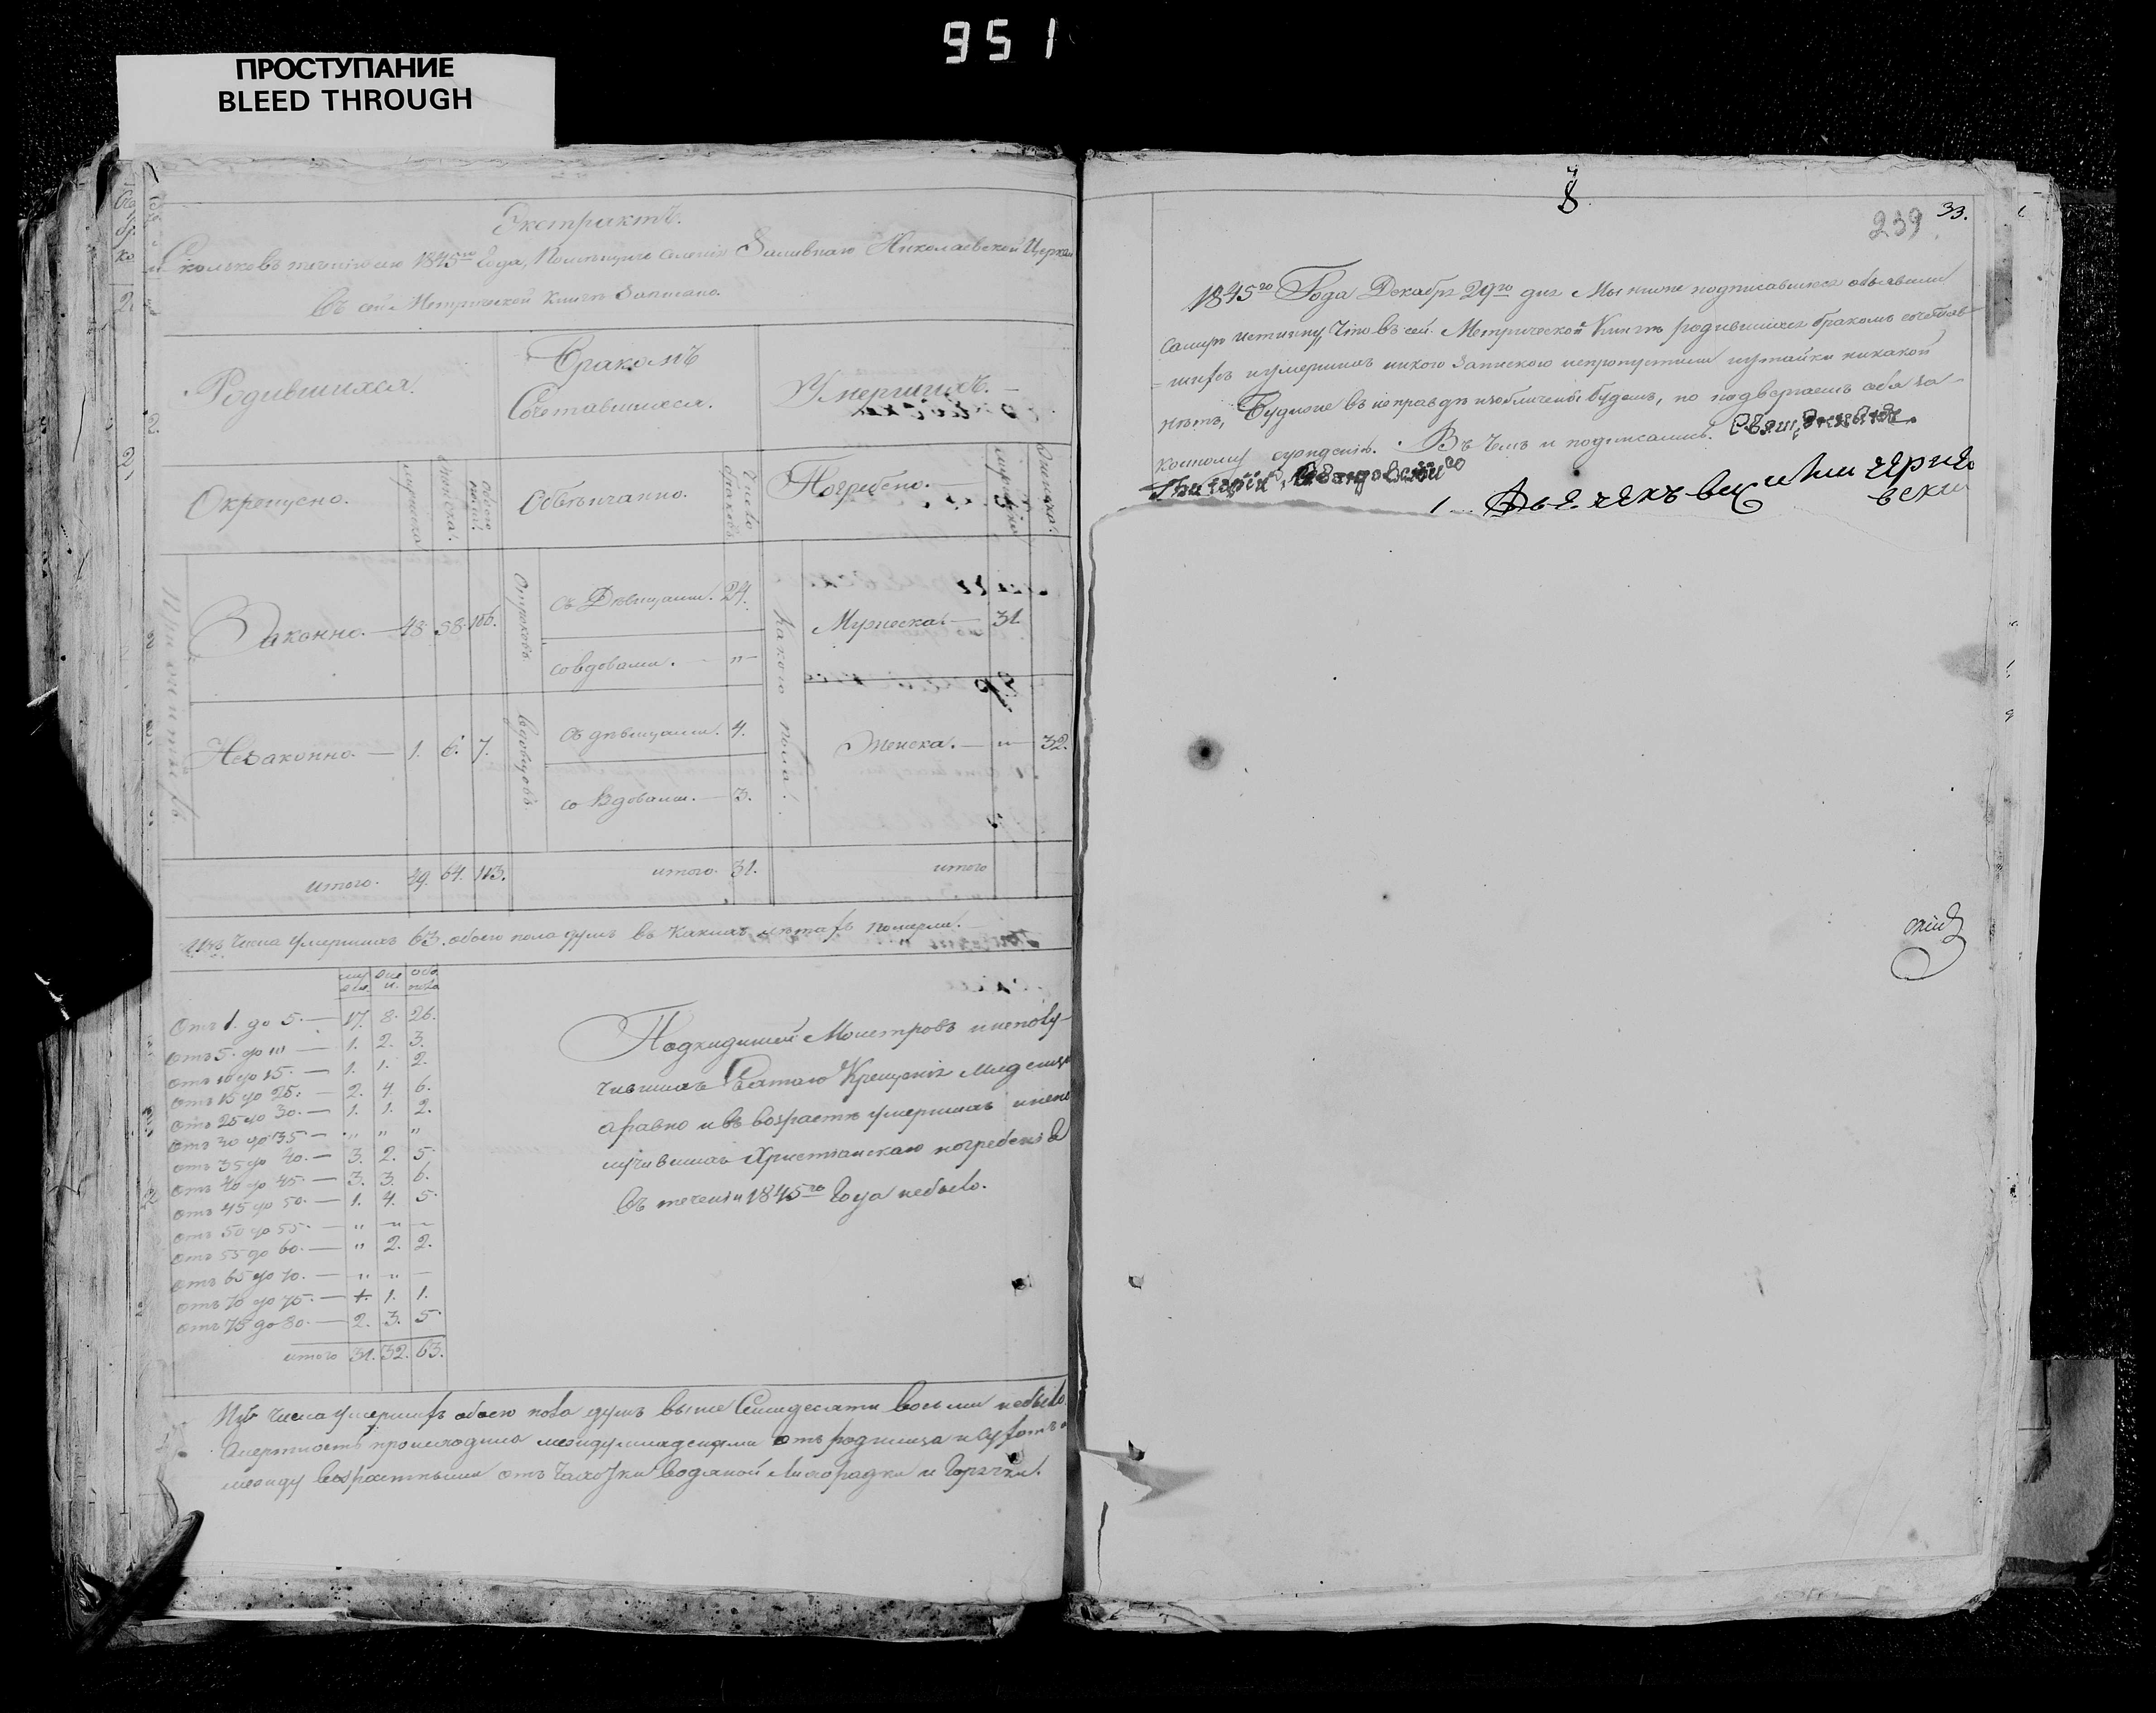 951
ПРОСТУПАНИЕ
BLEED THROUGH
Екстрактъ.
1845го Года, Николаевской Церкви
Въ сей Метрической Книгѣ Записано.
Родившихся.
Бракомъ
Сочетавшихся.
Умершихъ.
Окрещено.
мужеска
женска.
обоего пола.
Обвѣнчанно.
Число браковъ
Погребено.
мужеска
женска.
Законно. — 48. 58. 106.
Отроковъ
съ Дѣвицами. 24.
со вдовами. — „ —
Какого пола.
Мужеска. — 31
Незаконно. — 1. 6. 7.
Вдовцовъ.
съ дѣвицами. 4.
со Вдовами. — 3.
Женска. — „ — 32.
итого. 49. 64. 113.
итого. 31.
итого
Изъ Числа Умершихъ 63. обоего пола душъ въ какихъ лѣтахъ померли.
Отъ 1. до 5. — 17. 8. 26.
отъ 5. до 10 — 1. 2. 3.
отъ 10 до 15. — 1. 1. 2.
отъ 15 до 25. — 2. 4. 6.
отъ 25 до 30. — 1. 1. 2.
отъ 30 до 35 — „ „ „
отъ 35 до 40. — 3. 2. 5
отъ 40 до 45. — 3. 3. 6.
отъ 45 до 50. — 1. 4. 5
отъ 50 до 55. — „ „ —
отъ 55 до 60. — „ 2. 2.
отъ 65 до 70. — „ „ —
отъ 70 до 75. — 1. 1.
отъ 75 до 80. — 2. 3. 5
итого 31. 32. 63.
Подкидишей Монстровъ и неполу-
чившихъ Святаго Крещенія Младенц
а равно и въ возрастѣ умершихъ и непо
лучившихъ Христіанскаго погребенія
Въ теченіи 1845го Года небыло.
Изъ числа умершихъ обоего пола душъ выше Семидесяти восьми небыло.
Смертность происходила между младенцами отъ родимца и
между возрастными отъ Чахотки водяной Лихорадки и Горячки.
8
239 33.
1845го Года Декабря 29го дня Мы ниже подписавшіеся объявили
самую истинну, Что въ сей Метрической Книгѣ родившихся бракомъ сочетав-
шихъ и умершихъ никого Запискою непропустили и утайки никакой
нѣтъ, Буде же въ неправдѣ изобличены будемъ, то подвергаемъ себя за-
конному сужденію. Въ Чемъ и подписались. Священникъ
Григорій